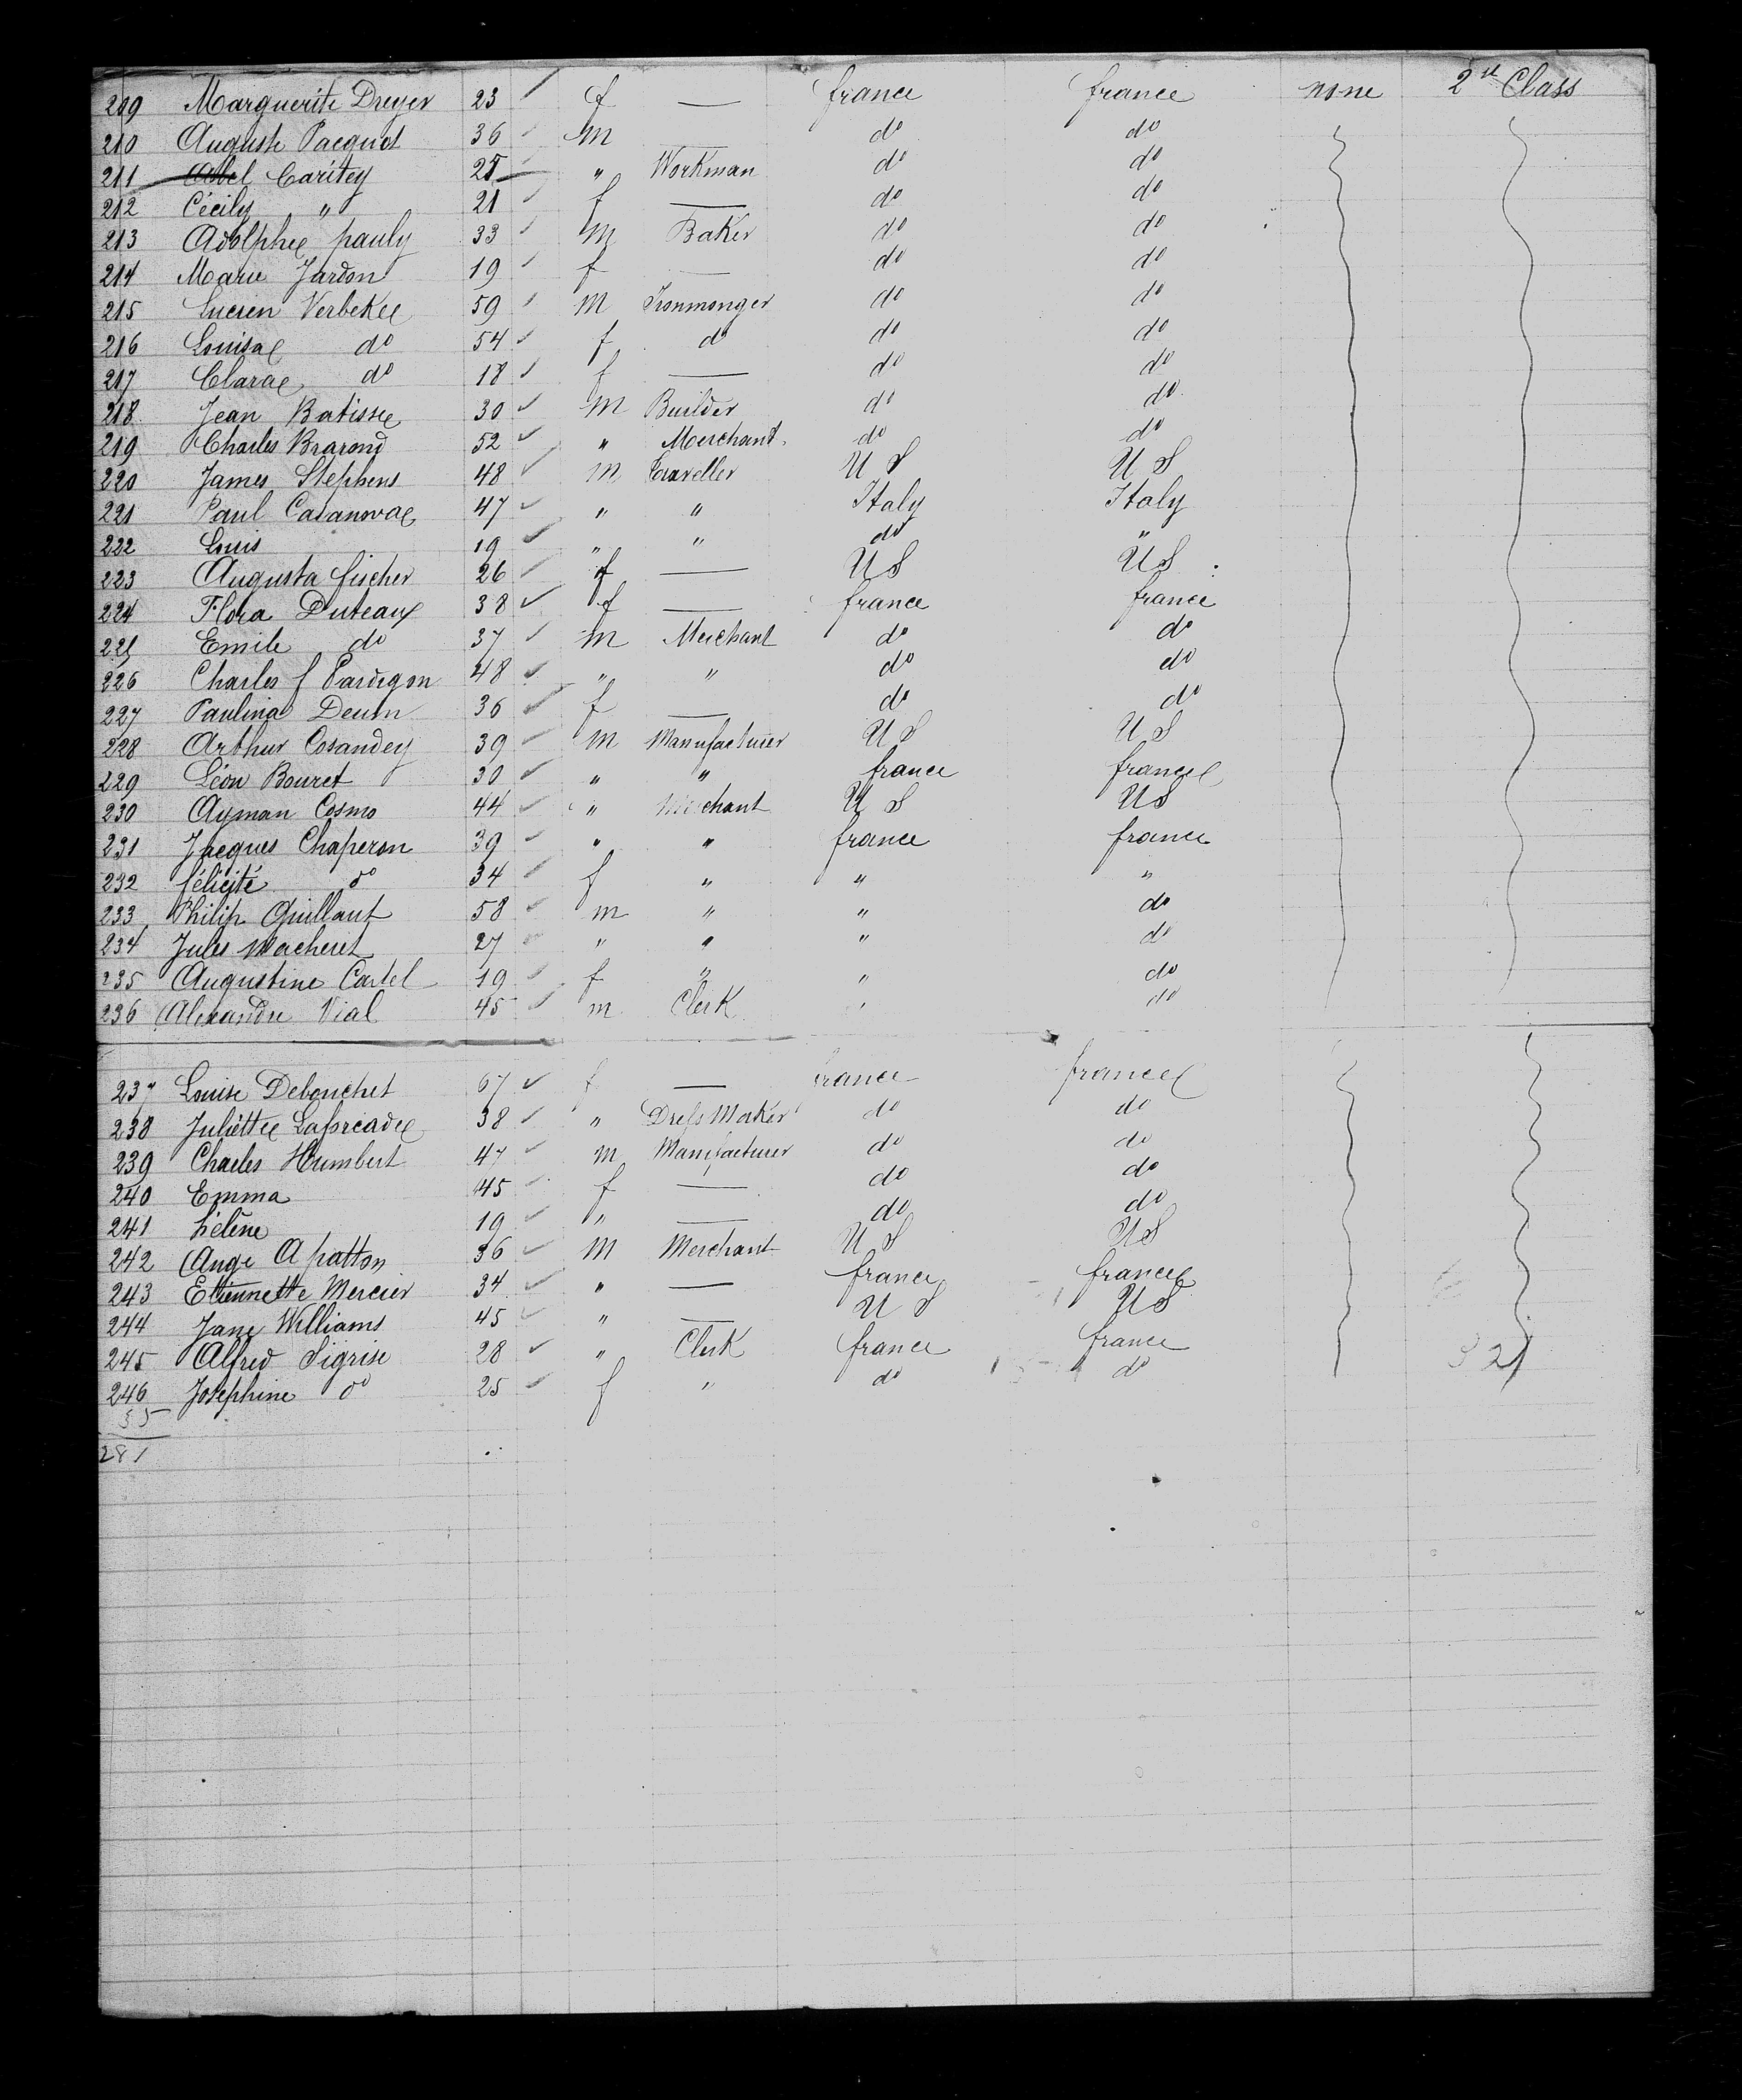 209 Marguerite Dreyer 23 f — france france none 2nd Class
210 Auguste Pacquet 36 m — do do
211 Abel Caritey 25 " Workman do do
212 Cécily " 21 f — do do
213 Adolphe pauly 33 m Baker do do
214 Marie Jardon 19 f — do do
215 Lucien Verbeke 59 m Ironmonger do do
216 Louisa do 54 f do do do
217 Clara do 18 f — do do
218 Jean Batisse 30 m Builder do do
219 Charles Brarond 52 " Merchant do do
220 James Stephens 48 m Traveller U S U S
221 Paul Casanova 47 " " Italy Italy
222 Louis 19 " " do "
223 Augusta fischer 26 f — U S U S
224 Flora Duteaux 38 f — france france
225 Emile do 37 m Merchant do do
226 Charles f Pardegon 48 " " do do
227 Paulina Deum 36 f — do do
228 Arthur Cosandey 39 m Manufacturer U S U S
229 Léon Bouret 30 " " france france
230 Ayman Cosmo 44 " Merchant U S U S
231 Jacques Chaperon 39 " " france france
232 félicité do 34 f " " "
233 Philip Guillaut 58 m " " do
234 Jules Macheret 27 " " " do
235 Augustine Cartel 19 f " " do
236 Alexandre Vial 45 m Clerk " do
237 Louise Debouchet 67 f — france france
238 Juliette 38 " Dress Maker do do
239 Charles Humbert 47 m Manufacturer do do
240 Emma 45 f — do do
241 hélène 19 " — do do
242 Ange A patton 36 m Merchant U S U S
243 Etiennette Mercier 34 " — france france
244 Jane Williams 45 " — U S U S
245 Alfred Sigrise 28 " Clerk france france
246 Josephine do 25 f " do do
35
281